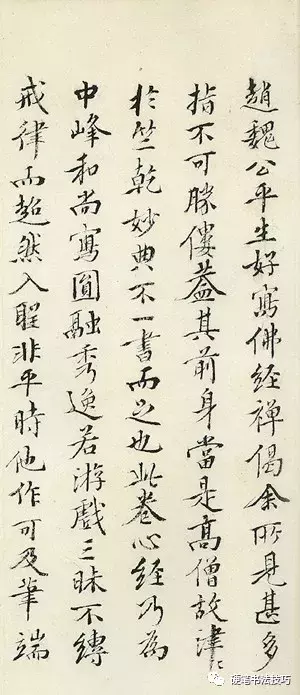 趙魏公平生好寫佛經禪偈余所見甚多
指不可勝僂蓋其前身當是高僧故津〻
於竺乾妙典不一書而足也此卷心經乃為
中峰和尚寫圓融秀逸若游戲三昧不縛
戒律而超然入聖非平時他作可及筆端
硬笔书法技巧